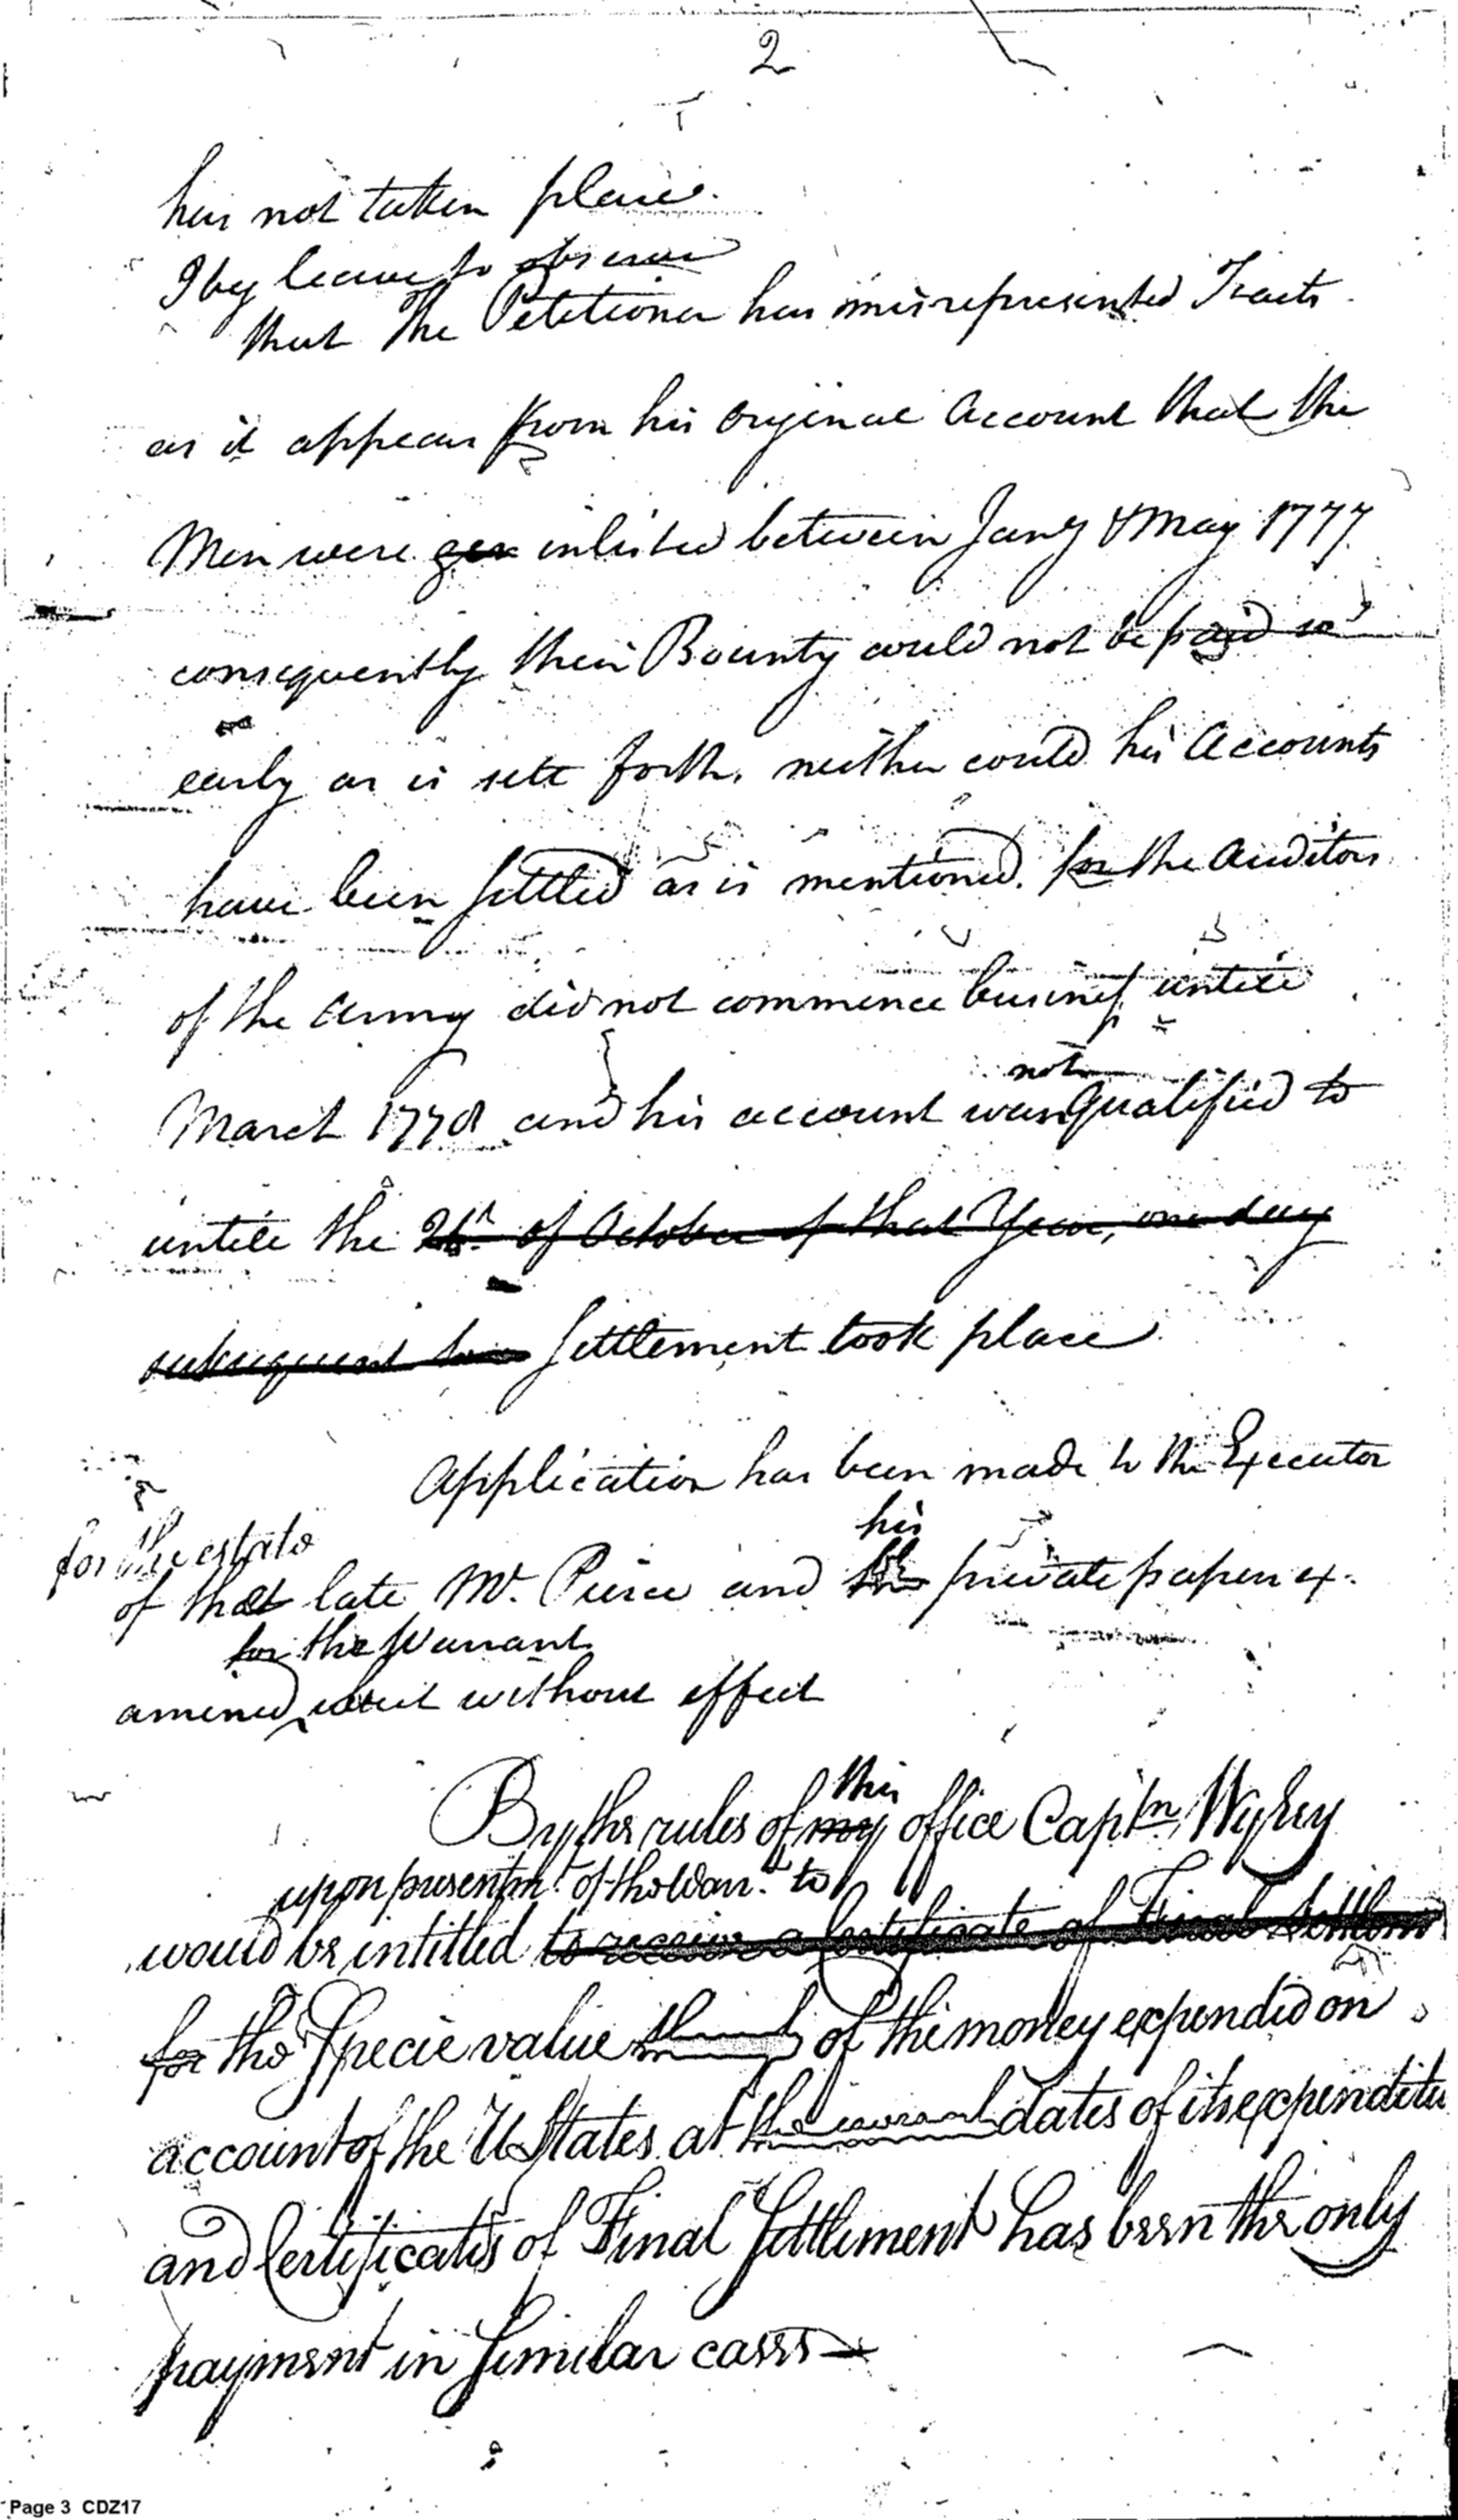 2
has not taken place.
I beg leave to observe
that The Petitioner has misrepresented Facts
as it appears from his Original Account that the
Men were inlisted between Jany & May 1777.
consequently their Bounty could not be paid so
early as is sett forth, neither could his Accounts
have been Settled as is mentioned. for the Auditors
of the Army did not commence business untill
not
March 1778 and his account was Qualified to
untill the 26th of October of that Year, one day
subsequent Settlement took place
Application has been made to the Executor
his
for the estate
of that late Mr. Pierce and the private papers ex-
for the Warrant
amined but without effect
this
By the rules of my office Captn. Wyley
upon presentm.t of the Warr.t to
would be intitled to receive a Certificate of Final Settlem
for the Specie value of the money expended on
account of the U States at the dates of its expenditu
and Certificates of Final Settlement has been the only
payment in Similar cases
Page 3 CDZ17